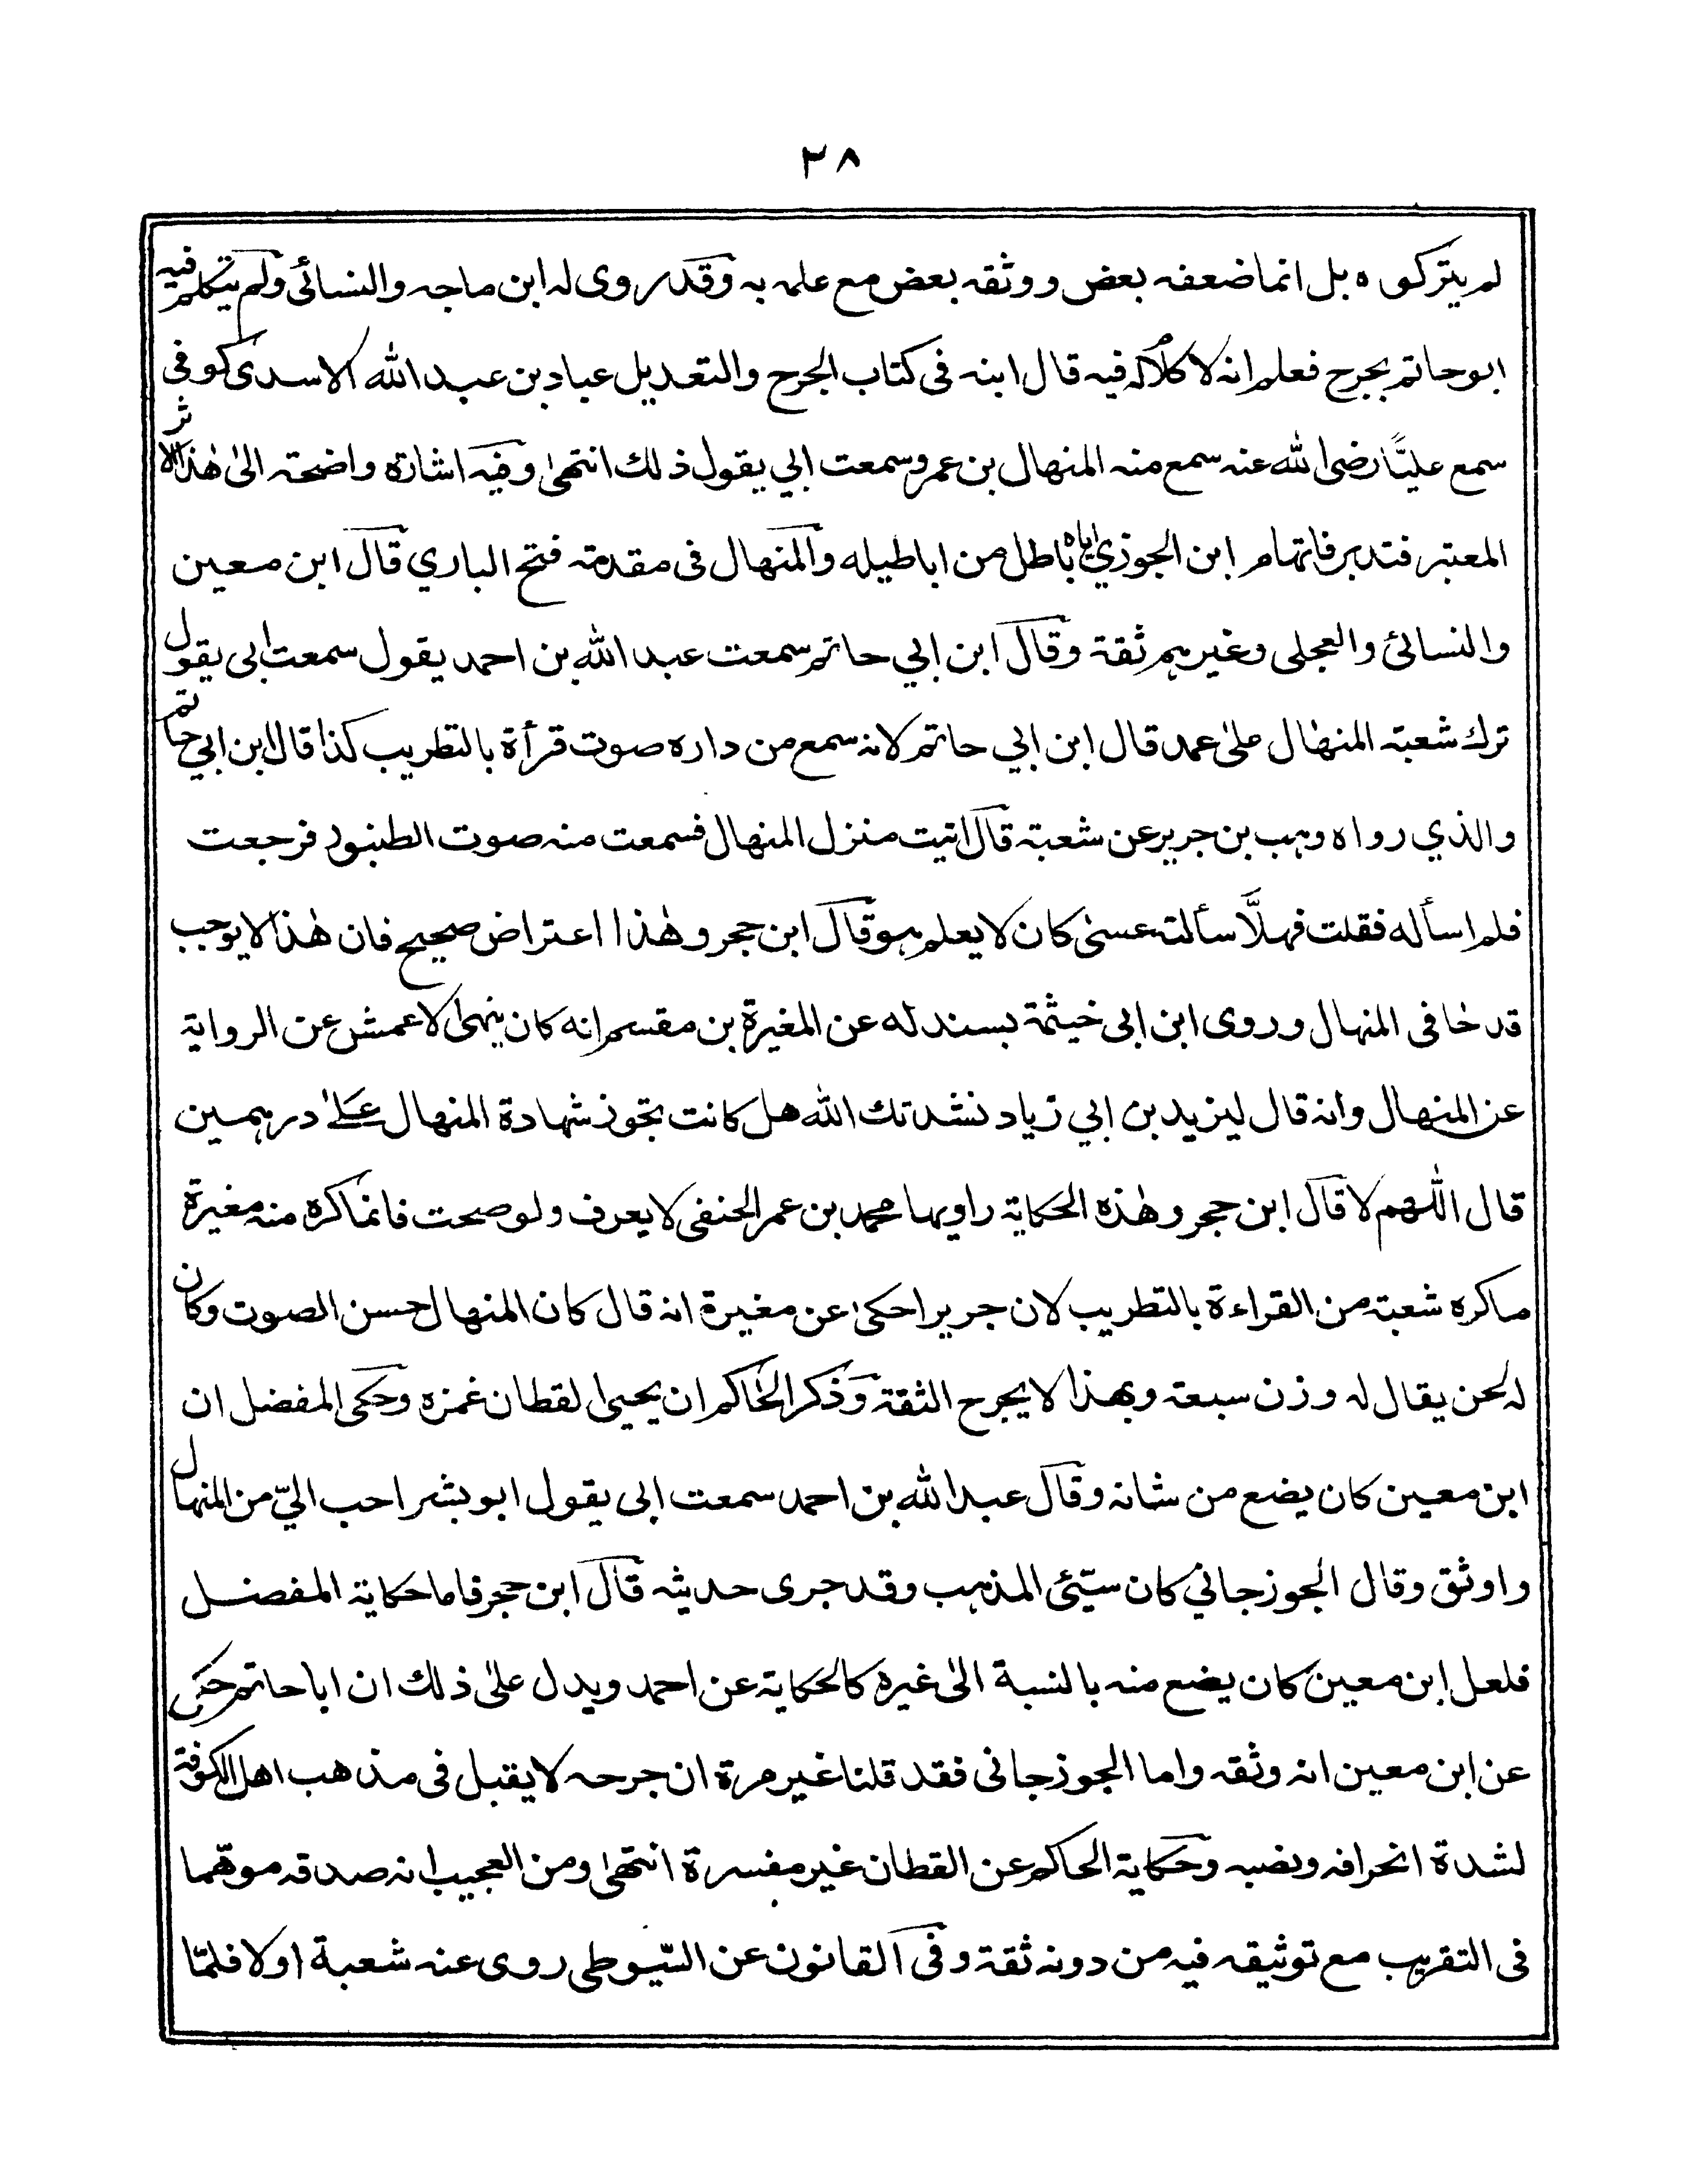 ٣٨
لم يتركوه بل انما ضعفه بعض ووثقه بعض مع علمه به وقد روى له ابن ماجه والنسائى ولم يتكلم فيه
ابو حاتم بجرح فعلم انه لا كلام له فيه قال ابنه فى كتاب الجرح والتعديل عباد بن عبد الله الاسدى كوفى
سمع عليًّا رضى الله عنه سمع منه المنهال بن عمرو سمعت ابي يقول ذلك انتهى وفيه اشارة واضحة الى هذا الاثر
المعتبر فتدبر فاتهام ابن الجوزي اياه باطل من اباطيله والمنهال فى مقدمة فتح الباري قال ابن معين
والنسائى والعجلى وغيرهم ثقة وقال ابن ابي حاتم سمعت عبد الله بن احمد يقول سمعت ابى يقول
ترك شعبة المنهال على عمد قال ابن ابي حاتم لانه سمع من داره صوت قرأة بالتطريب كذا قال ابن ابي حاتم
والذي رواه وهب بن جرير عن شعبة قال اتيت منزل المنهال فسمعت منه صوت الطنبور فرجعت
فلم اسأله فقلت فهلّا سألته عسى كان لا يعلم هو قال ابن حجر وهذا اعتراض صحيح فان هذا لا يوجب
قدحا فى المنهال وروى ابن ابى خيثمة بسند له عن المغيرة بن مقسم انه كان ينهى الاعمش عن الرواية
عن المنهال وانه قال ليزيد بن ابي زياد نشدتك الله هل كانت تجوز شهادة المنهال على درهمين
قال اللهم لا قال ابن حجر وهذه الحكاية راويها محمد بن عمر الحنفى لا يعرف ولو صحت فانما كره منه مغيرة
ما كره شعبة من القراءة بالتطريب لان جريرا حكى عن مغيرة انه قال كان المنهال حسن الصوت وكان
له لحن يقال له وزن سبعة وبهذا لا يجرح الثقة وذكر الحاكم ان يحيى القطان غمزه وحكى المفضل ان
ابن معين كان يضع من شانه وقال عبد الله بن احمد سمعت ابى يقول ابو بشر احب اليّ من المنهال
واوثق وقال الجوزجاني كان سيّئ المذهب وقد جرى حديثه قال ابن حجر فاما حكاية المفضل
فلعل ابن معين كان يضع منه بالنسبة الى غيره كالحكاية عن احمد ويدل على ذلك ان ابا حاتم حكى
عن ابن معين انه وثقه واما الجوزجانى فقد قلنا غير مرة ان جرحه لا يقبل فى مذهب اهل الكوفة
لشدة انحرافه ونصبه وحكاية الحاكم عن القطان غير مفسرة انتهى ومن العجيب انه صدقه موهّما
فى التقريب مع توثيقه فيه من دونه ثقة وفى القانون عن السّيوطى روى عنه شعبة اولا فلمّا